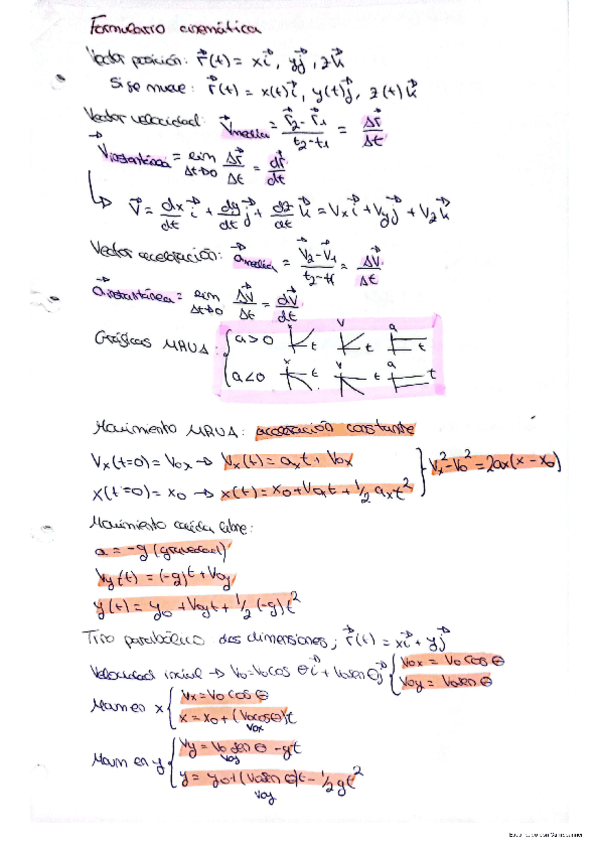 Formulario cinemática
Vector posición: r⃗(t) = xi⃗, yj⃗, zk⃗
Si se mueve: r⃗(t) = x(t)i⃗, y(t)j⃗, z(t)k⃗
Vector velocidad: V⃗media = r⃗2 - r⃗1 / t2 - t1 = Δr⃗ / Δt
V⃗instantánea = lim Δt→0 Δr⃗ / Δt = dr⃗ / dt
↳ V⃗ = dx/dt i⃗ + dy/dt j⃗ + dz/dt k⃗ = Vx i⃗ + Vy j⃗ + Vz k⃗
Vector aceleración: a⃗media = V⃗2 - V⃗1 / t2 - t1 = ΔV⃗ / Δt
a⃗instantánea = lim Δt→0 ΔV⃗ / Δt = dV⃗ / dt
Gráficas MRUA: { a>0 x t V t a t
a<0 x t v t a t
Movimiento MRUA: aceleración constante
Vx(t=0) = Vox → Vx(t) = ax t + Vox
x(t=0) = x0 → x(t) = x0 + V0 t + 1/2 ax t² } Vx² - V0² = 2ax(x - x0)
Movimiento caída libre:
a = -g (gravedad)
Vy(t) = (-g)t + Voy
y(t) = y0 + Voy t + 1/2 (-g) t²
Tiro parabólico dos dimensiones; r⃗(t) = xi⃗ + yj⃗
Velocidad inicial → V0 = V0 cos θ i⃗ + V0 sen θ j⃗ { Vox = V0 cos θ
Voy = V0 sen θ
Mov en x { Vx = V0 cos θ
x = x0 + (V0 cos θ)t
Vox
Mov en y { Vy = V0 sen θ - gt
Voy
y = y0 + (V0 sen θ)t - 1/2 g t²
Voy